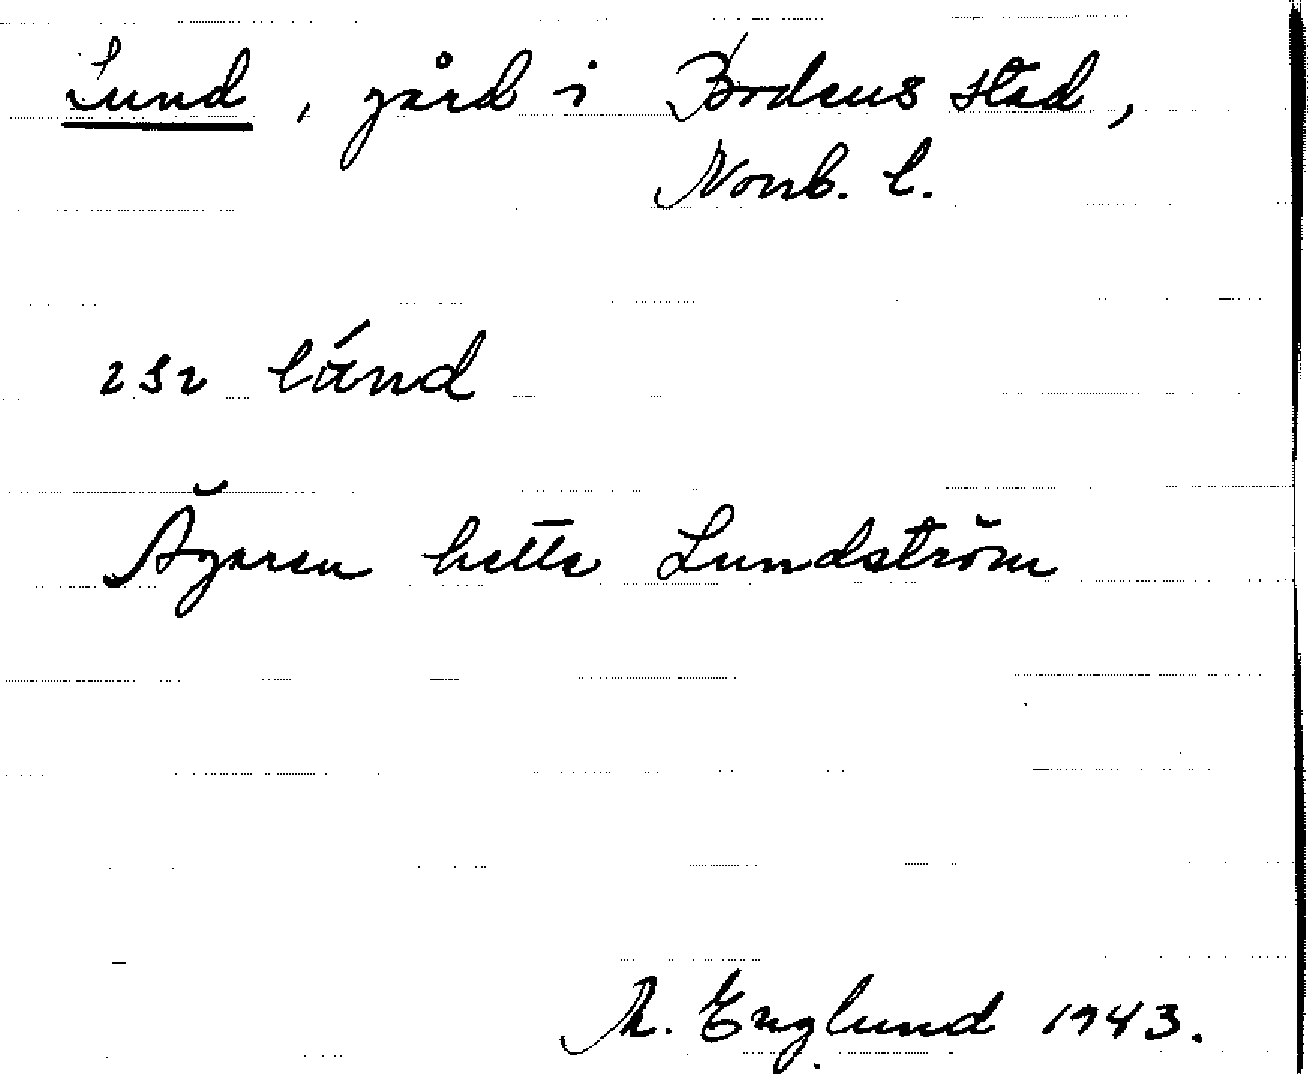 Lund, gård i Bodens stad,
Norrb. l.
252 lánd
Ägaren hette Lundström
M. Englund 1943.